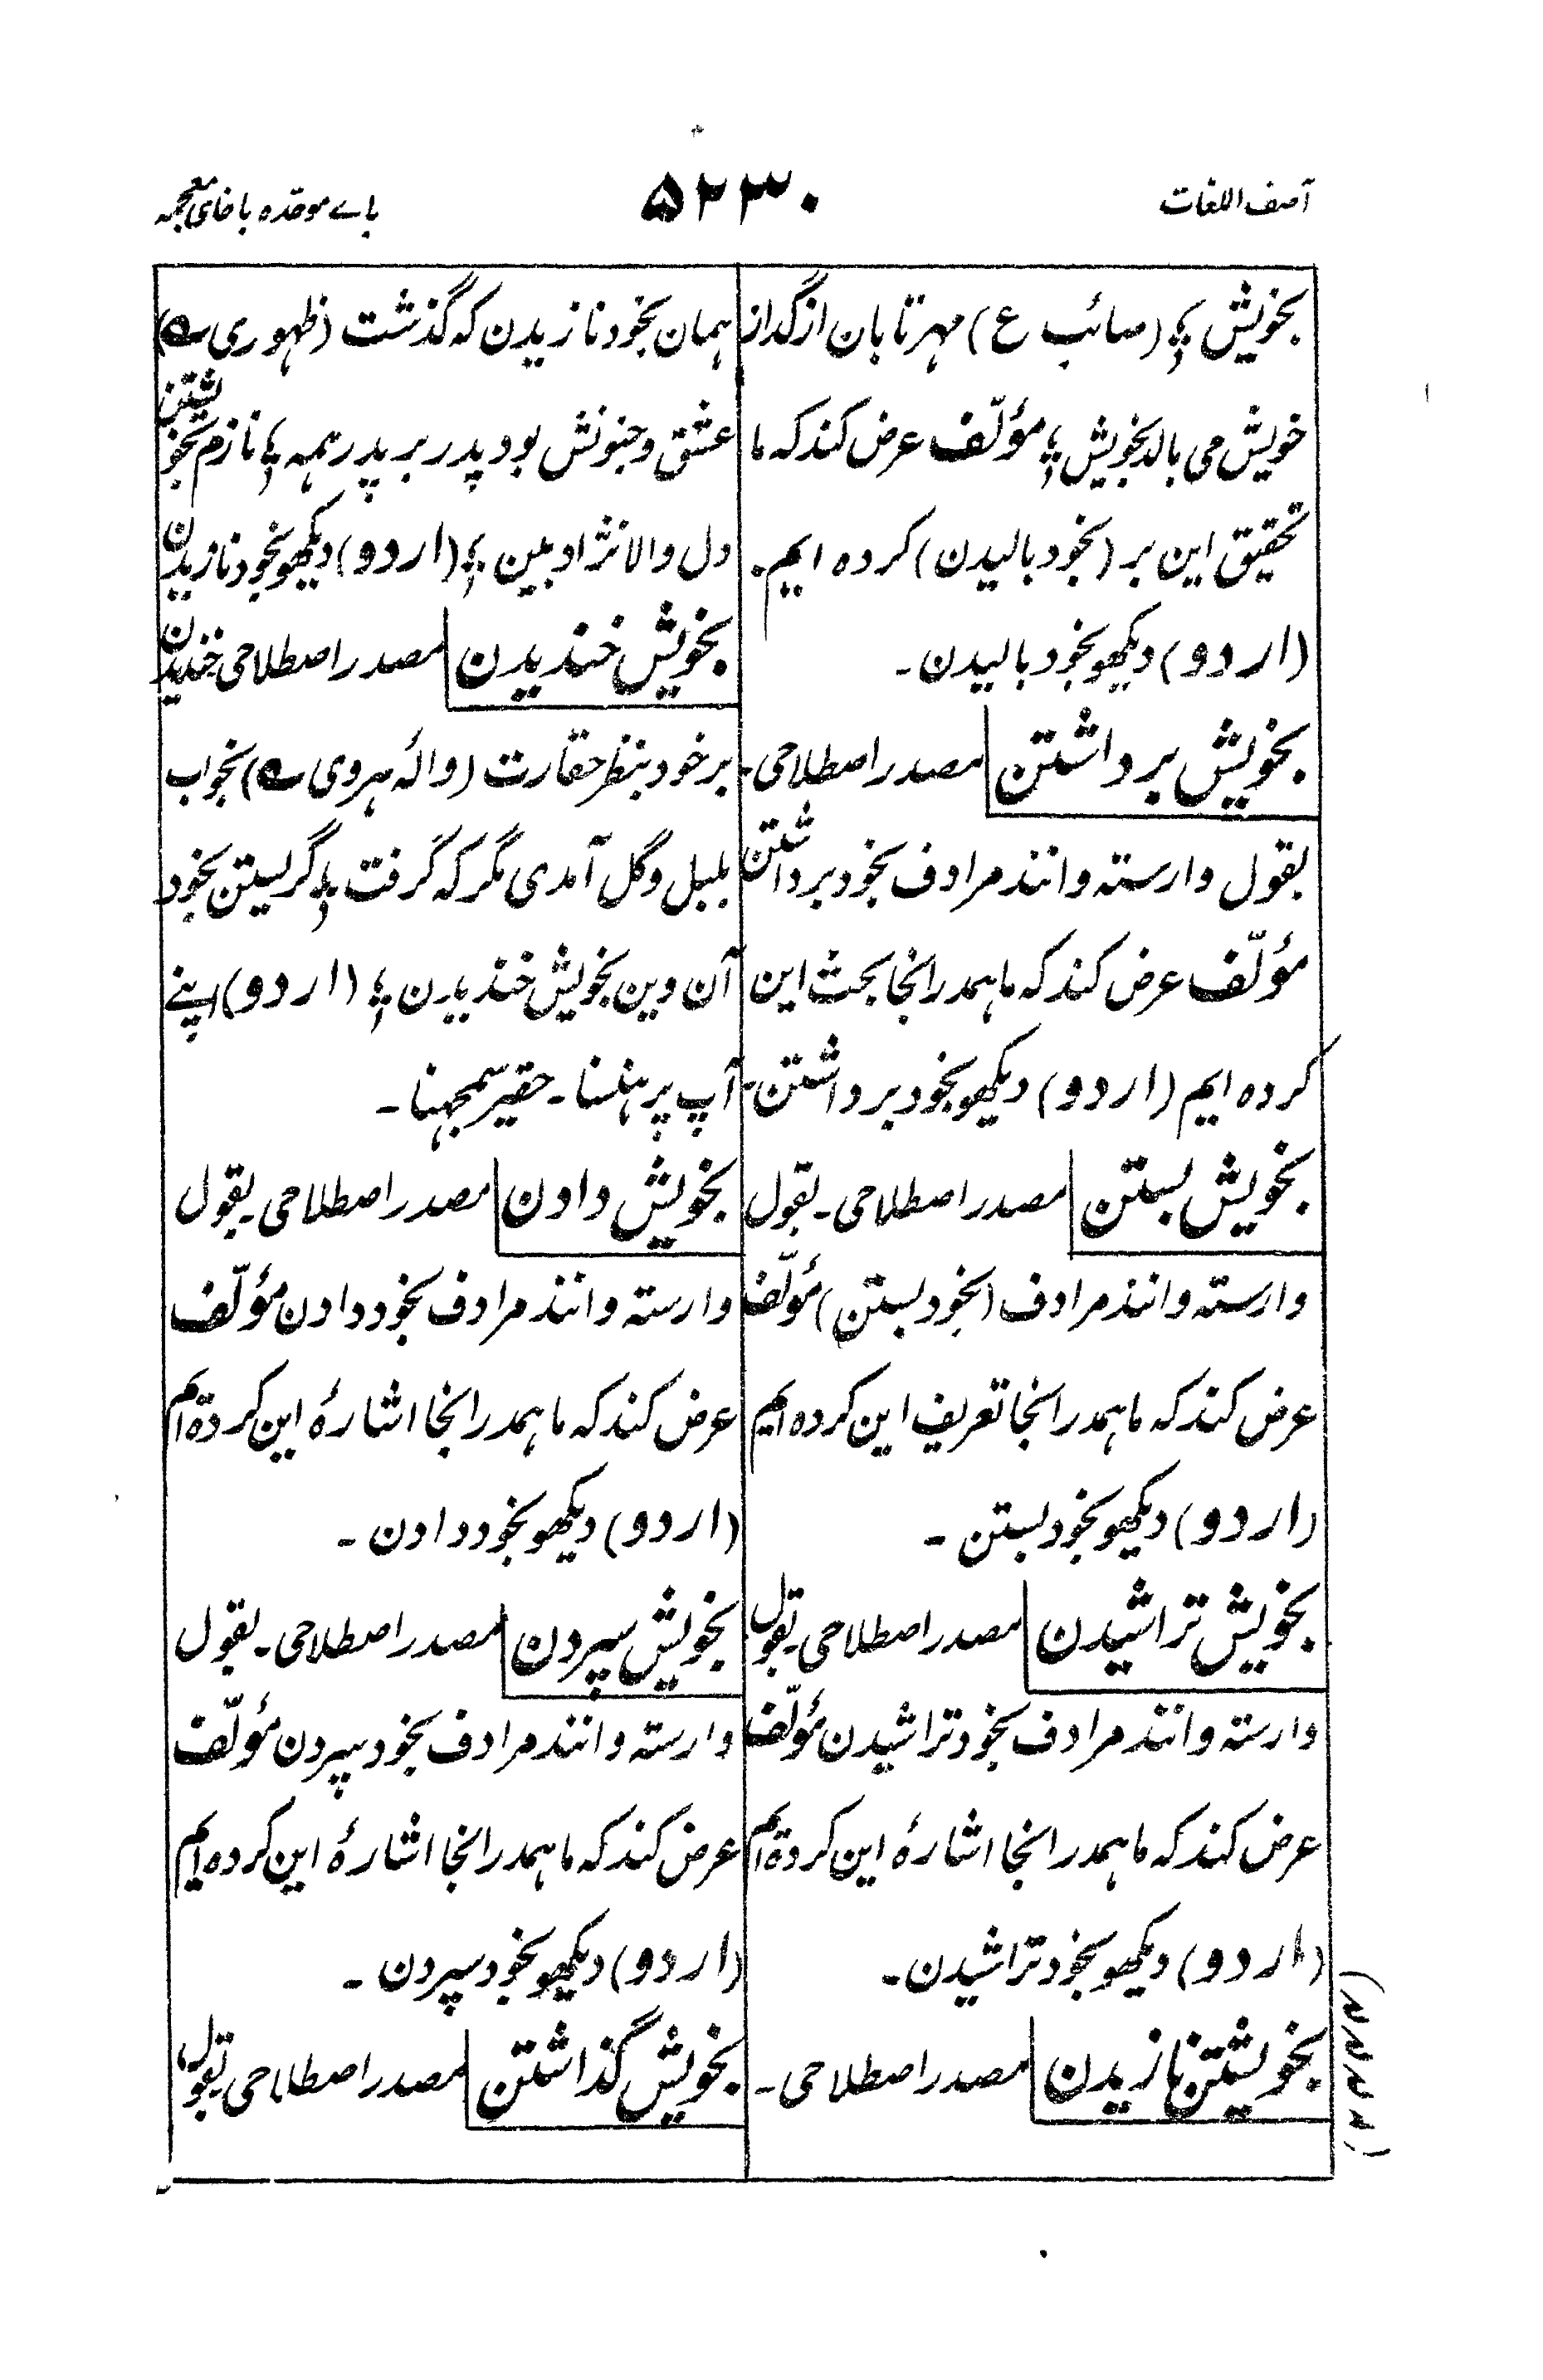 آصف اللغات
۵۲۳۰
باے موحّدہ با خای معجمہ
بخویش ؛ (صائب ع) مہر تابان از گداز
خویش می بالد بخویش ؛ مؤلّف عرض کند کہ ما
تحقیق این بر (بخود بالیدن) کردہ ایم۔
(اردو) دیکھو بخود بالیدن۔
بخویش برداشتن مصدر اصطلاحی۔
بقول وارستہ و انند مرادف بخود برداشتن
مؤلّف عرض کند کہ ماہمدرانجا بحث این
کردہ ایم (اردو) دیکھو بخود برداشتن۔
بخویش بستن مصدر اصطلاحی۔ بقول
وارستہ و انند مرادف (بخود بستن) مؤلّف
عرض کند کہ ماہمدرانجا تعریف این کردہ ایم
(اردو) دیکھو بخود بستن۔
بخویش تراشیدن مصدر اصطلاحی۔ بقول
وارستہ و انند مرادف بخود تراشیدن مؤلّف
عرض کند کہ ماہمدرانجا اشارۂ این کردہ ایم
(اردو) دیکھو بخود تراشیدن۔
بخویشتن نازیدن مصدر اصطلاحی۔
ہمان بخود نازیدن کہ گذشت (ظہوری ؎)
عشق و جنونش بود پدر بر پدر ہمہ ؛ نازم بخویشتن
دل والا نژاد بین ؛ (اردو) دیکھو بخود نازیدن
بخویش خندیدن مصدر اصطلاحی خندیدن
بر خود بنظر حقارت (والۂ ہروی ؎) بخواب
بلبل و گل آمدی مگر کہ گرفت ؛ گریستن بخود
آن وین بخویش خندیدن ؛ (اردو) اپنے
آپ پر ہنسنا۔ حقیر سمجہنا۔
بخویش دادن مصدر اصطلاحی۔ بقول
وارستہ و انند مرادف بخود دادن مؤلّف
عرض کند کہ ماہمدرانجا اشارۂ این کردہ ایم
(اردو) دیکھو بخود دادن۔
بخویش سپردن مصدر اصطلاحی۔ بقول
وارستہ و انند مرادف بخود سپردن مؤلّف
عرض کند کہ ماہمدرانجا اشارۂ این کردہ ایم
(اردو) دیکھو بخود سپردن۔
بخویش گذاشتن مصدر اصطلاحی بقول